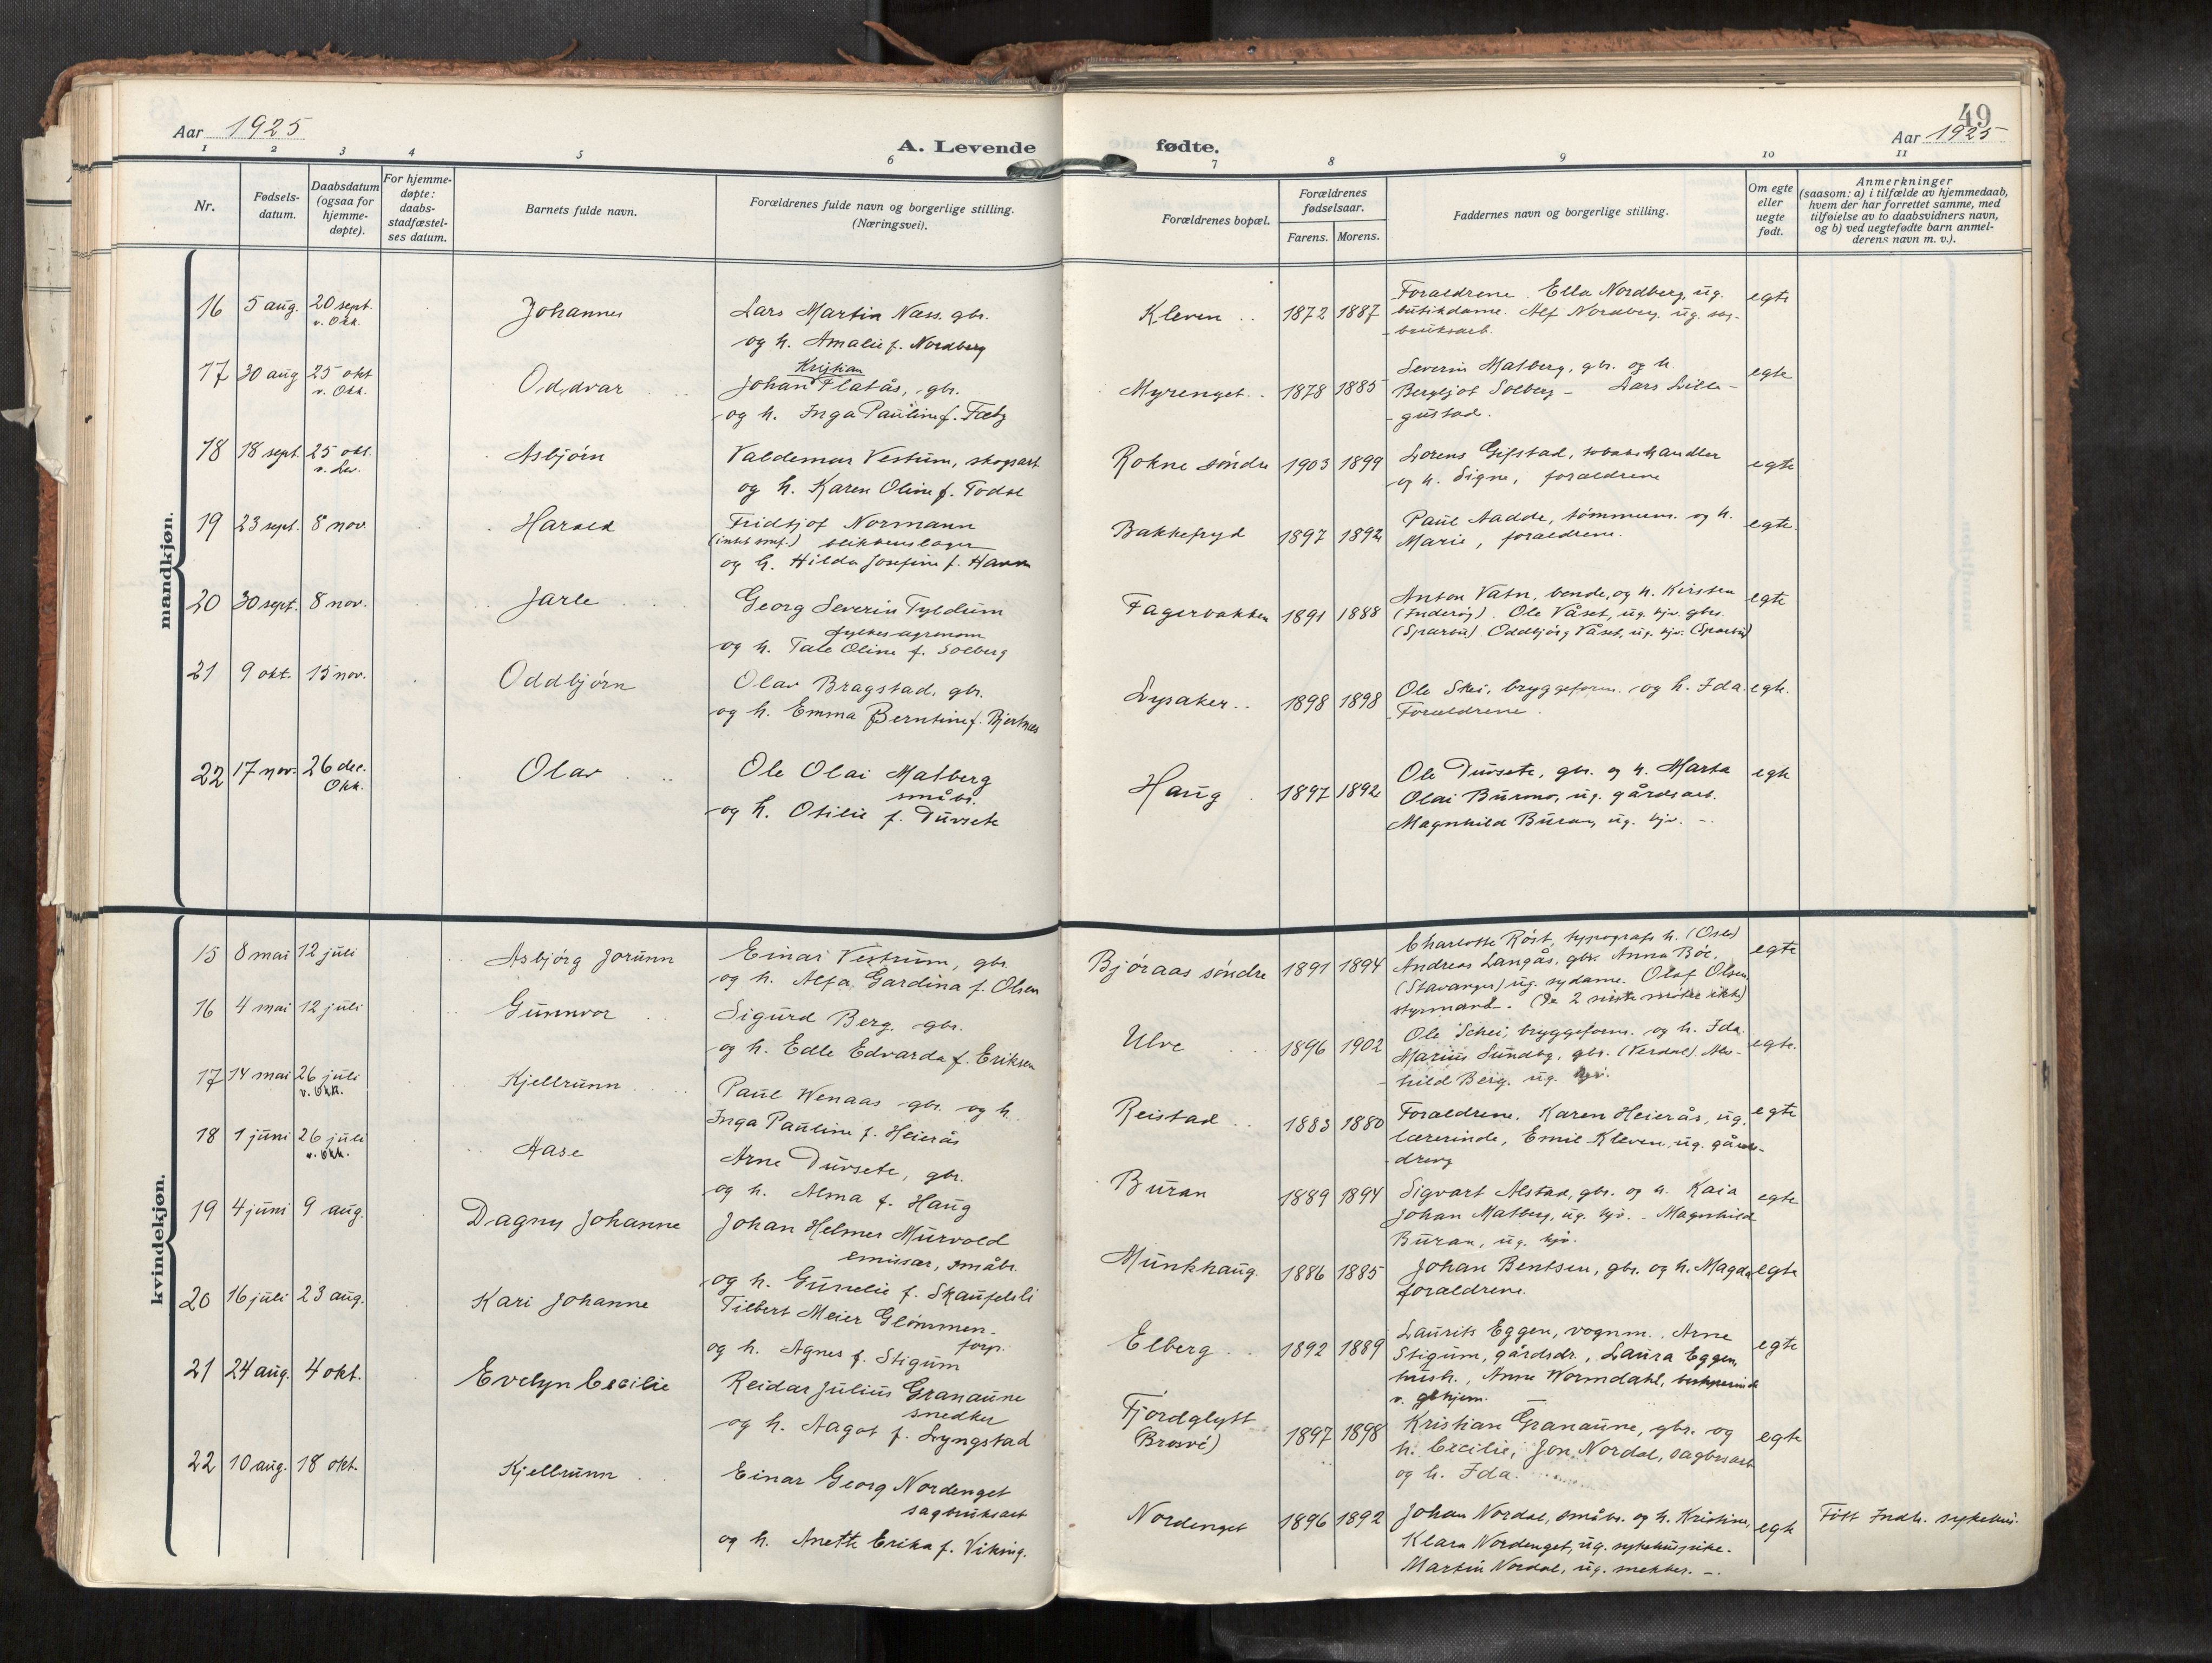 49
Aar 1925
A. Levende
fødte.
Aar 1925
1 2 3 4 5 6 7 8 9 10 11
Nr.
Fødsels-
datum.
Daabsdatum
(ogsaa for
hjemme-
døpte).
For hjemme-
døpte:
daabs-
stadfæstel-
ses datum.
Barnets fulde navn.
Forældrenes fulde navn og borgerlige stilling.
(Næringsvei).
Forældrenes bopæl.
Forældrenes
fødselsaar.
Farens. Morens.
Faddernes navn og borgerlige stilling.
Om egte
eller
uegte
født.
Anmerkninger
(saasom: a) i tilfælde av hjemmedaab,
hvem der har forrettet samme, med
tilføielse av to daabsvidners navn,
og b) ved uegtefødte barn anmel-
derens navn m. v.).
mandkjøn.
16 5 aug. 20 sept. Johannes Lars Martin Næss. gbr. Kleven 1872 1887 Forældrene. Ella Nordberg, ug. egte
v. Okk. og h. Amalie f. Nordberg butikdame. Alf Nordberg. ug. sag-
bruksarb.
17 30 aug 25 okt Oddvar Johan Kristian Flatås, gbr. Myrenget 1878 1885 Severin Matberg, gbr. og h. egte
v. Okk. og h. Inga Pauline f. Fæby Bergljot Solberg - Lars Lille-
gustad.
18 18 sept. 25 okt. Asbjörn Valdemar Vestrum, skogsarb. Rokne söndre 1903 1899 Lorens Gifstad, tobakshandler egte
v. Lev. og h. Karen Oline f. Todal og h. Signe, forældrene
19 23 sept. 8 nov. Harald Fridtjof Normann Bakkefryd 1897 1892 Paul Aadde, tömmerm. og h. egte.
blikkenslager Marie, forældrene.
og h. Hilda Josefine f. Havn
20 30 sept. 8 nov. Jarle Georg Severin Tyldum Fagerbakken 1891 1888 Anton Vatn, bonde, og h. Kirsten egte
fylkesagronom (Inderöy). Ole Våset, ug. hjv. gbr.
og h. Tale Oline f. Solberg (Sparbu) Oddbjörg Våset, ug. hjv. (Sparbu)
21 9 okt. 15 nov. Oddbjörn Olav Bragstad, gbr. Lysaker 1898 1898 Ole Skei, bryggeform. og h. Ida. egte.
og h. Emma Berntine f. Bjertnæs Forældrene.
22 17 nov. 26 dec. Olav Ole Olai Matberg Haug 1897 1892 Ole Dursete, gbr. og h. Marta egte
Okk. småbr. Olai Buran, ug. gårdsarb.
og h. Otilie f. Dursete Magnhild Buran, ug. hjv. -
kvindekjøn.
15 8 mai 12 juli Asbjörg Jorunn Einar Vestrum, gbr. Björaas söndre 1891 1894 Charlotte Röst, typografs h. (Oslo) egte
og h. Alfa Gardina f. Olsen Andreas Langås, gbr. Anna Böe,
(Stavanger) ug. sydame. Olaf Olsen,
styrmand. (De 2 siste mötte ikke)
16 4 mai 12 juli Gunnvor Sigurd Berg. gbr. Ulve 1896 1902 Ole Schei, bryggeform. og h. Ida. egte.
og h. Edle Edvarda f. Eriksen Marius Sundby, gbr. (Verdal). Alv-
hild Berg. ug. hjv.
17 14 mai 26 juli Kjellrunn Paul Wenaas gbr. og h. Reistad 1883 1880 Forældrene. Karen Heierås, ug. egte
v. Okk. Inga Pauline f. Heierås lærerinde, Emil Kleven, ug. gårds-
dreng
18 1 juni 26 juli Aase Arne Dursete, gbr. Buran 1889 1894 Sigvart Alstad, gbr. og h. Kaia egte
v. Okk. og h. Alma f. Haug Johan Matberg, ug. hjv. - Magnhild
Buran, ug. hjv.
19 4 juni 9 aug. Dagny Johanne Johan Helmer Murvold Munkhaug. 1886 1885 Johan Bentsen, gbr. og h. Magda egte
emissær, småbr. forældrene.
og h. Gunelie f. Skaufelsli
20 16 juli 23 aug. Kari Johanne Tilbert Meier Glömmen. Elberg 1892 1889 Laurits Eggen, vognm., Arne egte
forp. Stigum, gårdsdr., Laura Eggen,
og h. Agnes f. Stigum hush., Anne Wormdahl, bestyrerinde
v. glhjem.
21 24 aug. 4 okt. Evelyn Cecilie Reidar Julius Granaune Fjordglytt 1897 1898 Kristian Granaune, gbr. og egte
snedker (Brosve) h. Cecilie, Jon Nordal, sagbrsarb
og h. Aagot f. Lyngstad og h. Ida.
22 10 aug. 18 okt. Kjellrunn Einar Georg Nordenget Nordenget 1896 1892 Johan Nordal, småbr. og h. Kristine, egte Fött Indh. sykehus.
sagbruksarb Klara Nordenget, ug. sykehuspike.
og h. Anette Erika f. Viking. Martin Nordal, ug. snekker. -.